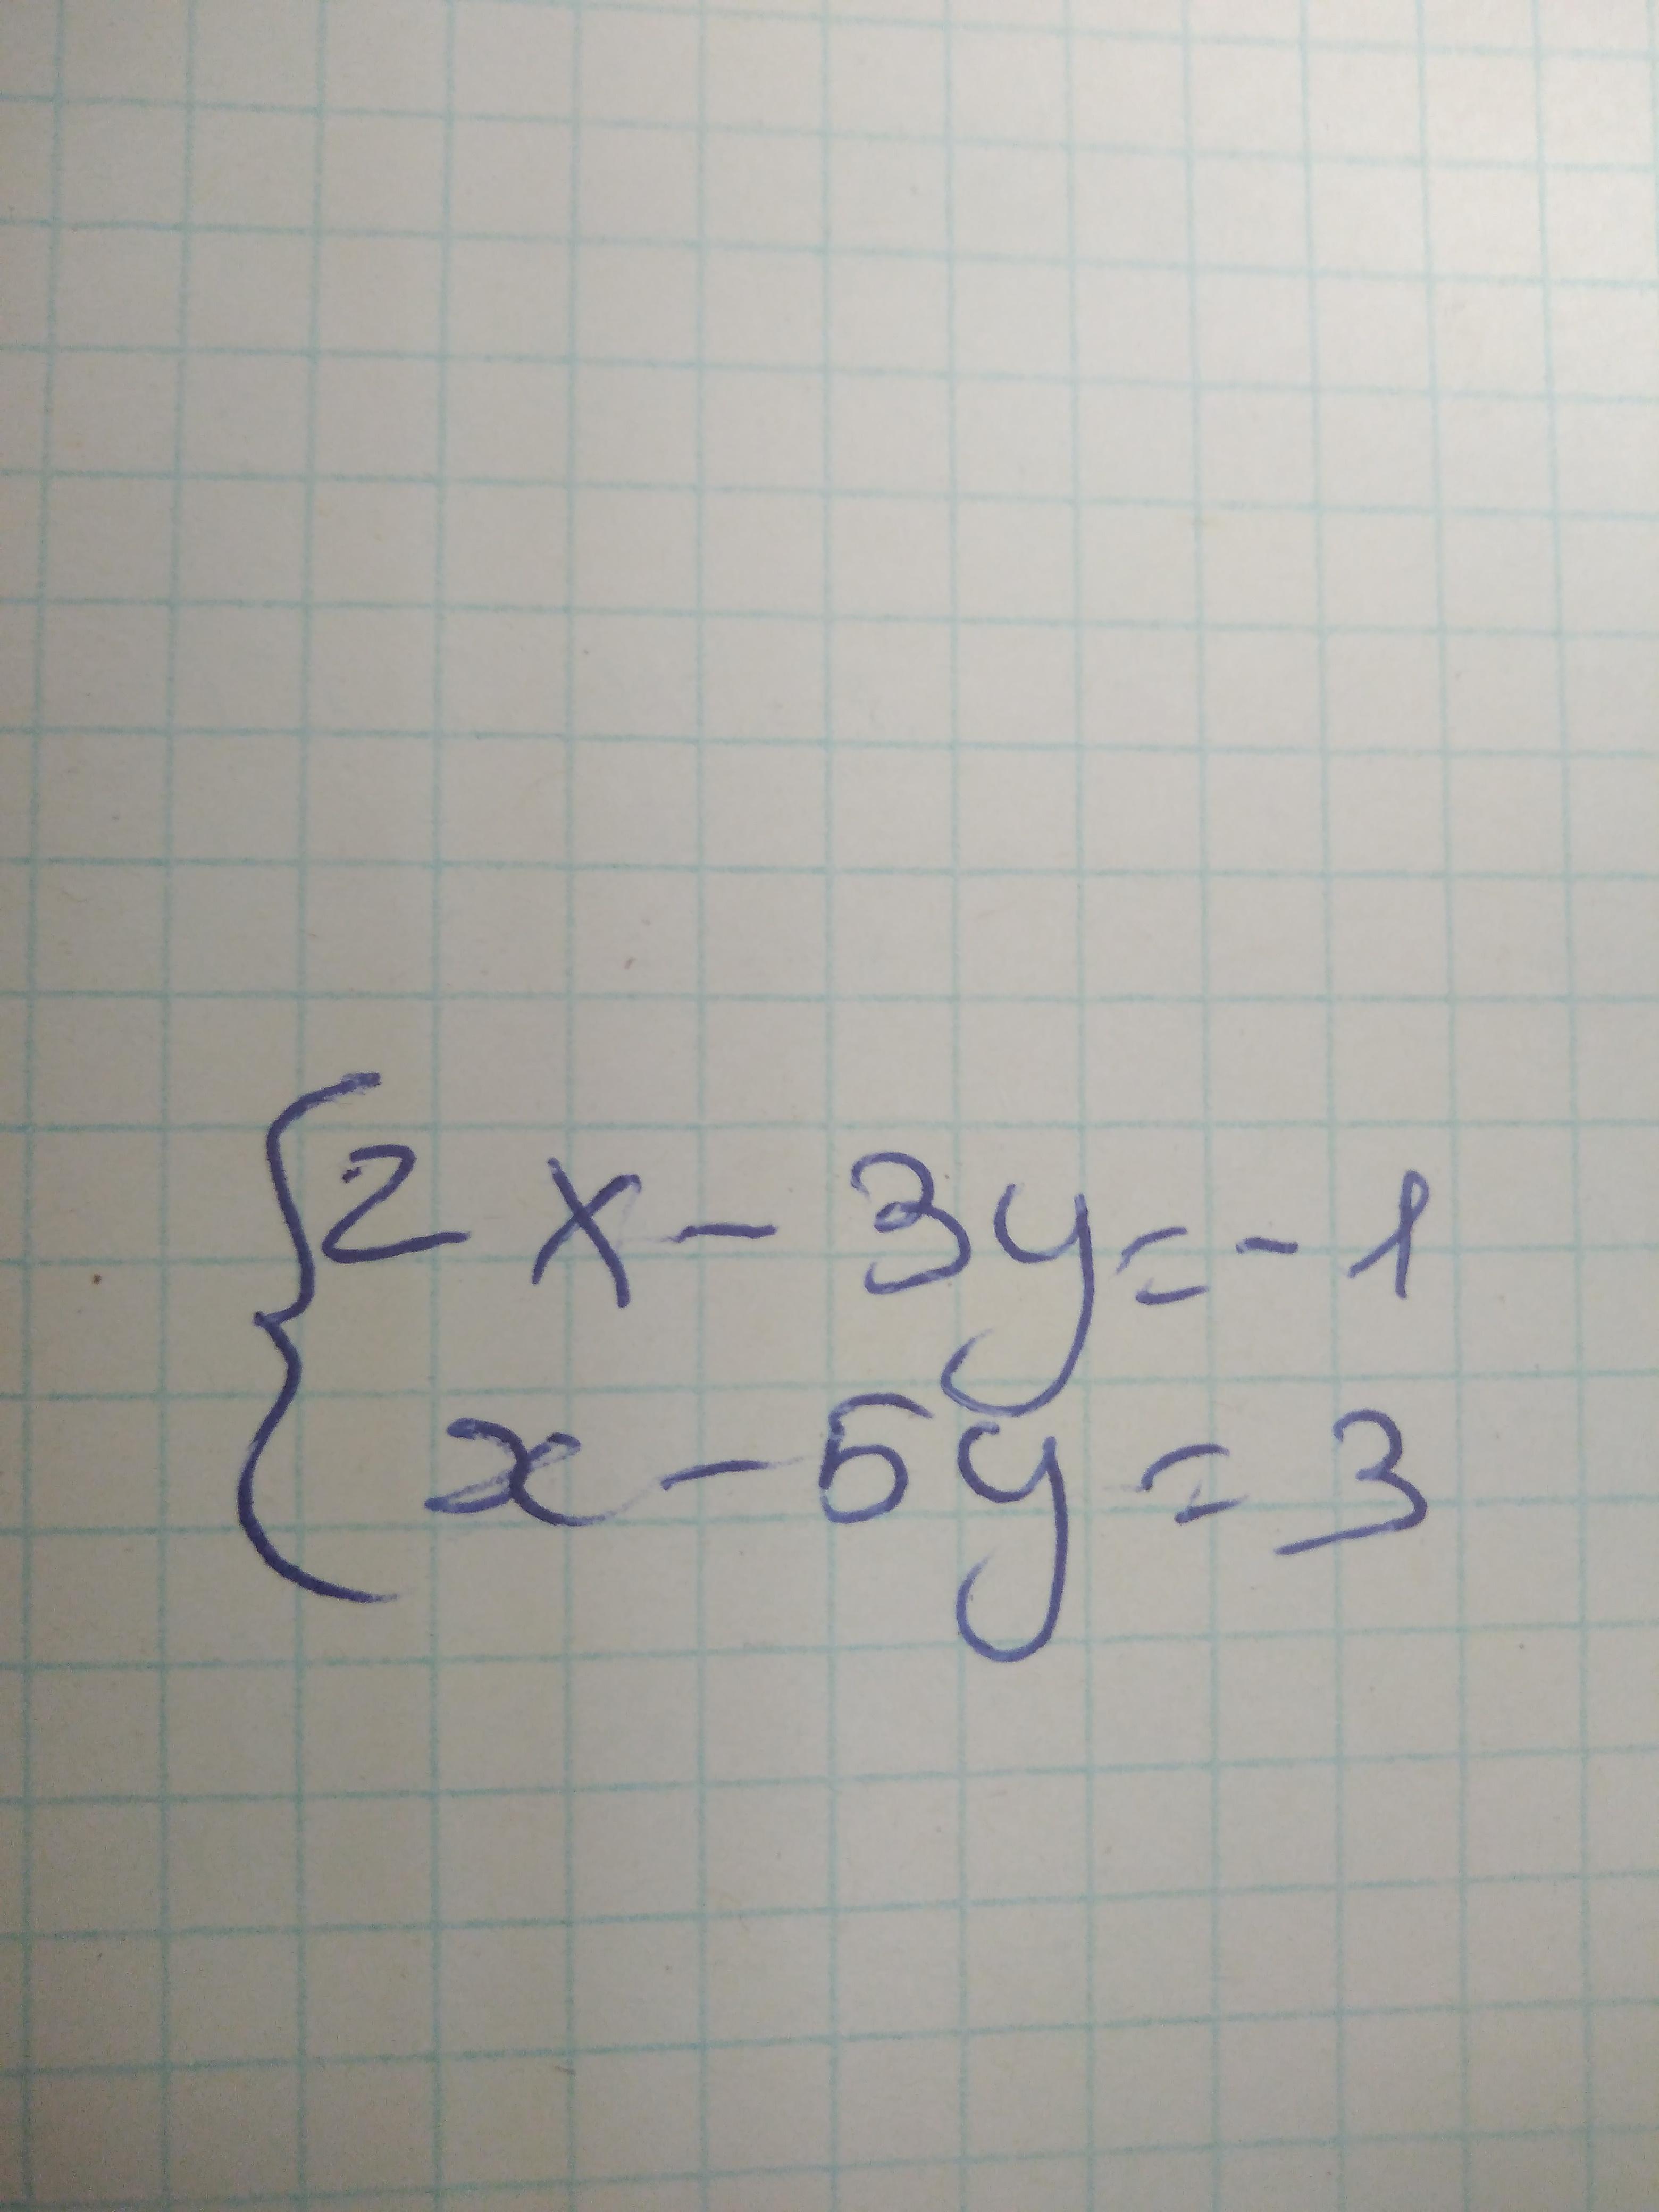 2x - 3y = -1
x - 5y = 3